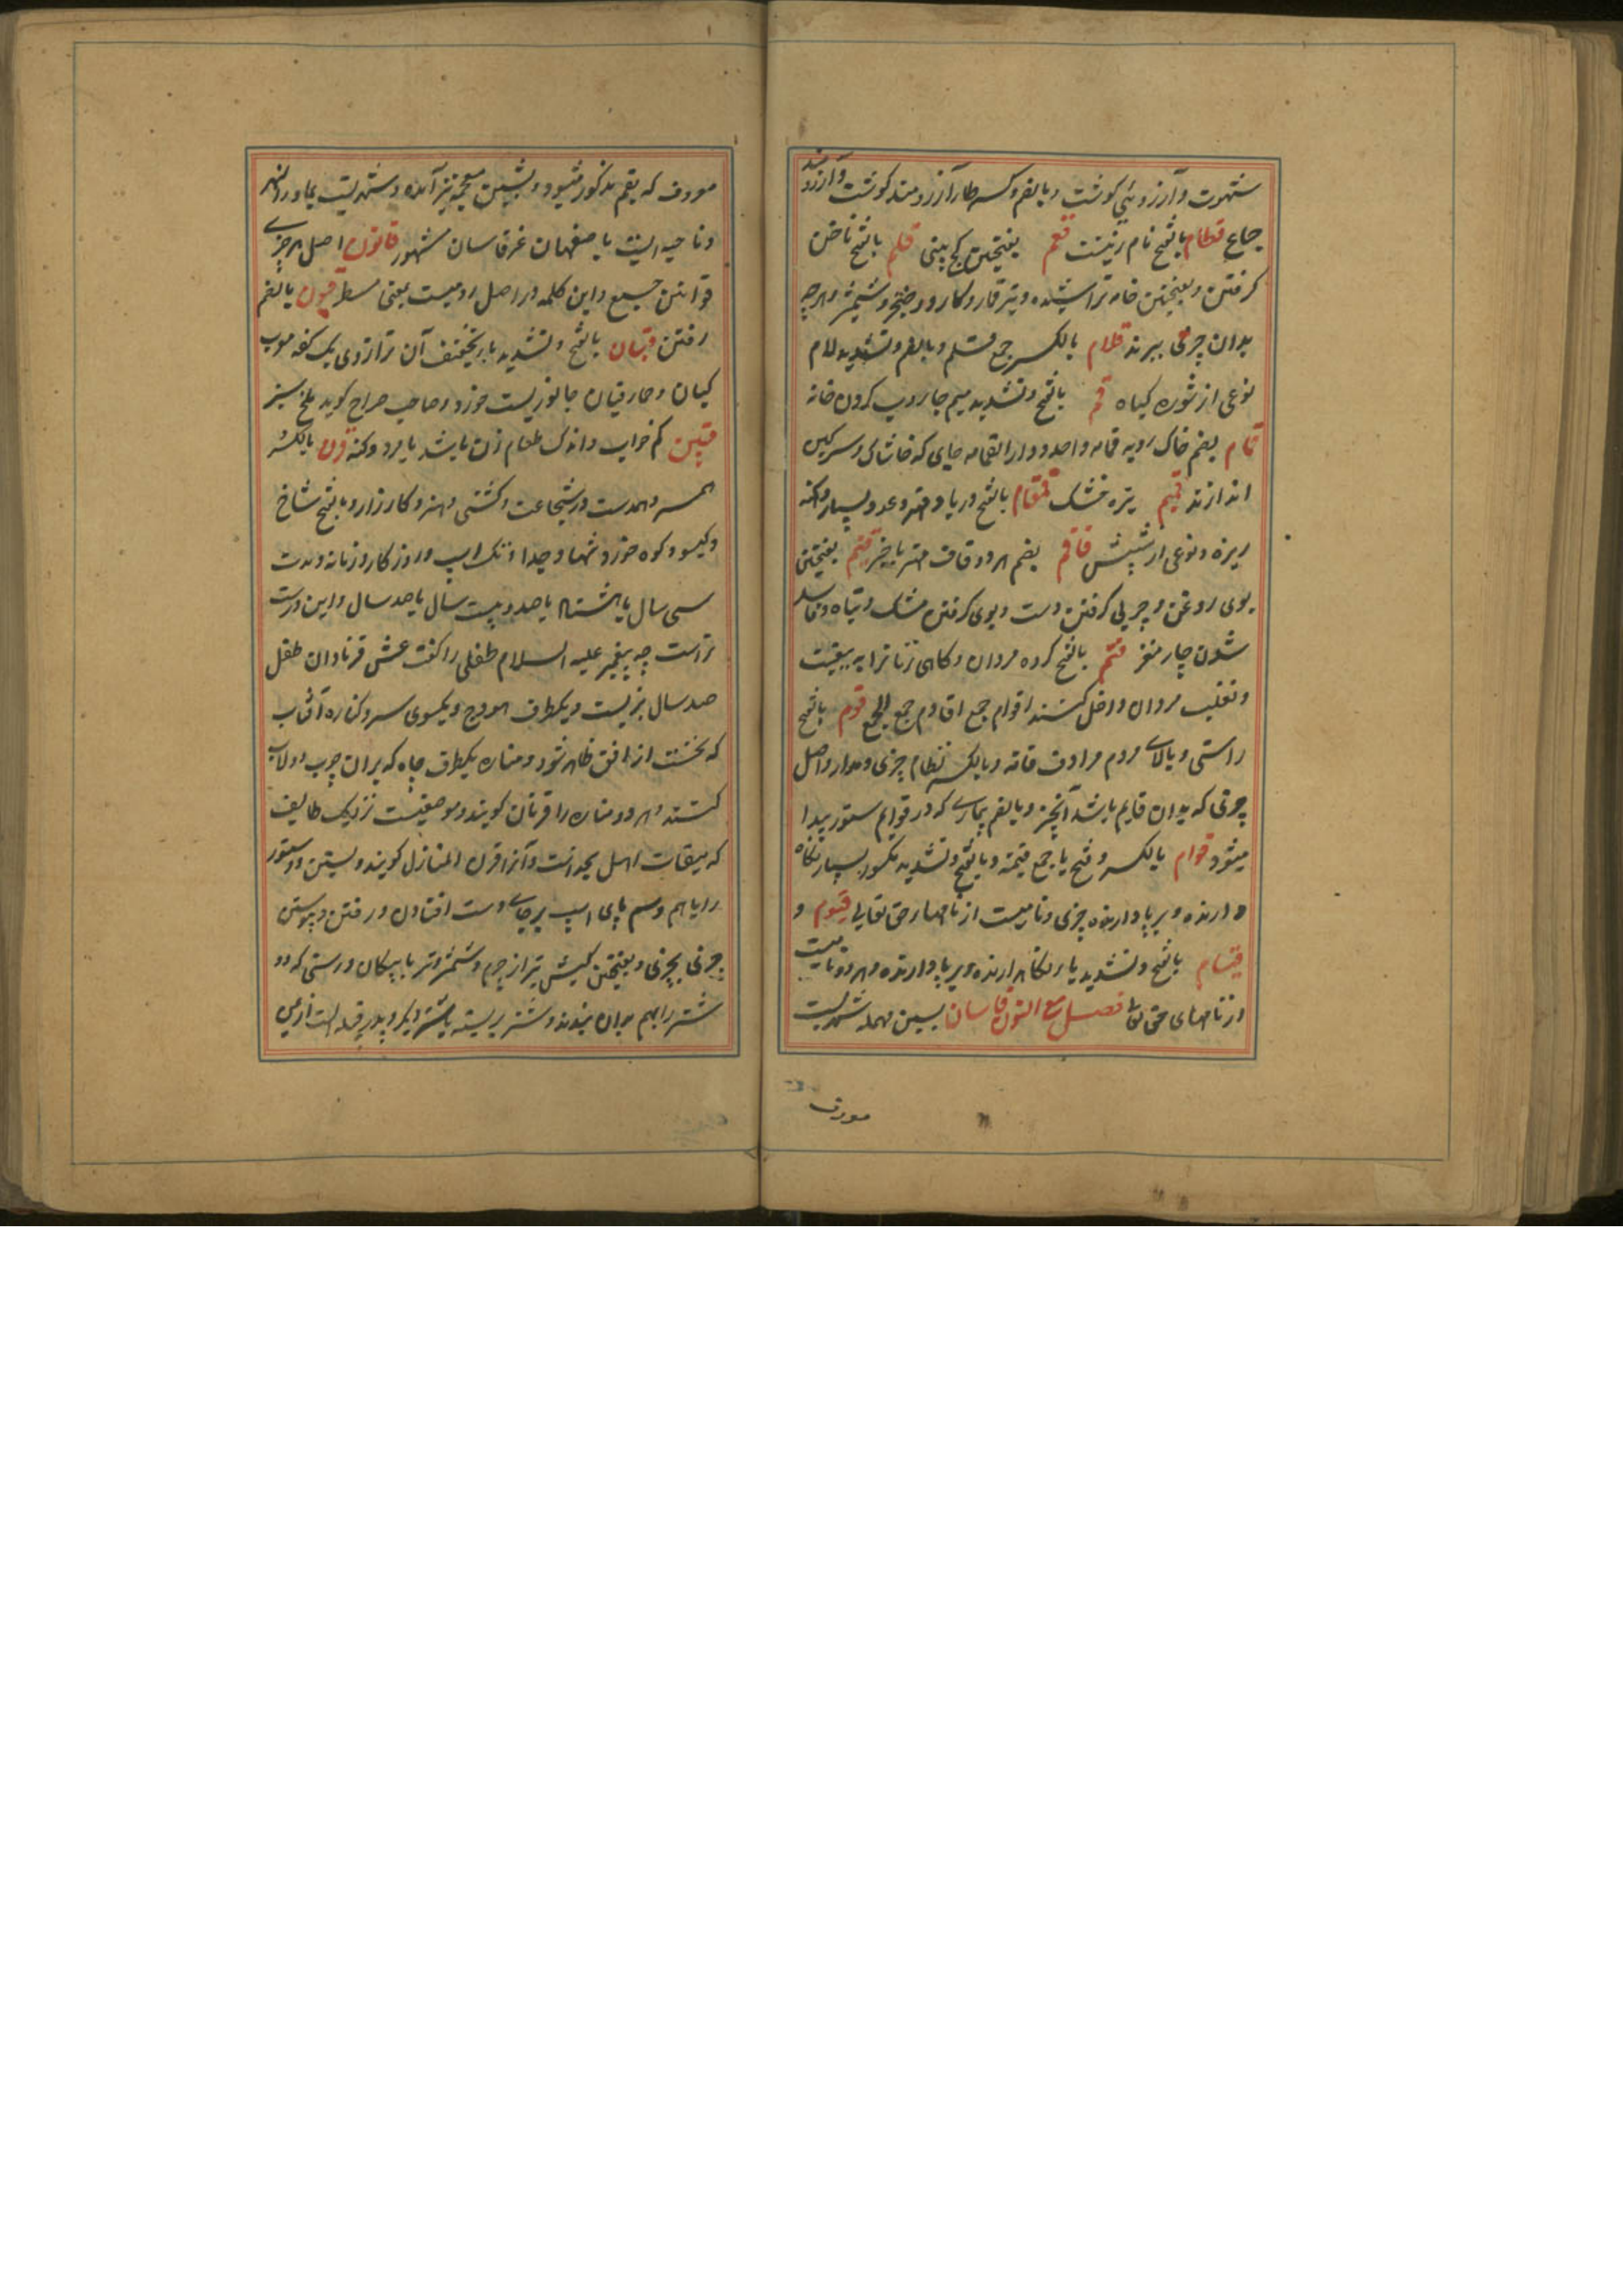 شهوت و آرزوئی کوشت و بالضم و کسر طار آرزومند کوشت و آرزومند
جماع قطام بالفتح نام زنیست قعم بفتحتین کج بینی قلم بالفتح ناخن
کرفتن و بفتحتین خامه تراشیده و تیر قمار و کارد و خنجر و شمشیر و هرچه
بدان چرمی ببرند قلام بالکسر جمع قلم و بالضم و تشدید لام
نوعی از شوره کیاه قم بالفتح و تشدید میم جاروب کردن خانه
قمام بضم خاک روبه قمامه واحد و دار القمامه جای که خاشاک و سرکین
اندازند قمیم تره خشک قمقام بالفتح دریا و مهتر و عدد بسیار و کنه
ریزه و نوعی از شپش قماقم بضم هر دو قاف مهتر با خیر قنم بفتحتین
بوی روغن و چربی کرفتن دست و بوی کرفتن مشک و تباه و فاسد
شدن چار مغز قوم بالفتح کروه مردان و کاهی زنانرا به تبعیت
و تغلیب مردان داخل کنند اقوام جمع اقاوم جمع الجمع قوم بالفتح
راستی و بالای مردم مرادف قامة و بالکسر نظام چیزی و مدار و اصل
چیزی که بدان قایم باشد آنچیز و بالضم بیماری که در قوایم ستور پیدا
میشود قوام بالکسر و فتح یا جمع قیمة و بالفتح و تشدید مکسور بسیار نکاه
دارنده و برپا دارنده چیزی و نامیست از نامهای حق تعالی قیوم و
قیام بالفتح و تشدید یا نکاهدارنده و برپا دارنده و هر دو نامیست
از نامهای حق تعالی فصل مع النون قاسان بسین مهمله شهریست
معروف
معروف که بقم مذکور میشود و بشین معجمه نیز آمده و شهریست بماوراءالنهر
و ناحیه ایست باصفهان غیر قاسان مشهور قانون اصل هر چیزی
قوانین جمع و این کلمه در اصل رومیست یعنی مسطر قبون بالضم
رفتن قبان بالفتح و تشدید با و تخفیف آن ترازوی یک کفه معرب
کپان و حمار قبان جانوریست خورد و صاحب صراح کوید ملخ سبز
قتین کم خواب و اندک طعام زن باشد یا مرد و کنه قرن بالکسر
همسر و همدست در شجاعت و کشتی و هنر و کارزار و بالفتح شاخ
و کیسو و کوه خورد و تنها و جدا و تک اسپ و روزکار و زمانه و مدت
سی سال یا هشتاد یا صد و بیست سال یا صد سال و این درست
تر است چه پیغمبر علیه السلام طفلی را کفت عش قرنا و ان طفل
صد سال بزیست و یکطرف هودج و یکسوی سر و کناره آفتاب
که نخست از افق ظاهر شود و مناره یکطرف چاه که بران چوب دولاب
کنند و هر دو مناره را قرنان کویند و موضعیست نزدیک طایف
که میقات اهل نجد است و آنرا قرن المنازل کویند و بستن دو ستور
را باهم و سم پای اسپ برجای دست افتادن در رفتن و پیوستن
چیزی بچیزی و بفتحتین کیش تیر از چرم و شمشیر و تیر با پیکان و رسنی که دو
شتر را بهم بدان بندند و شتر بسته با شتر دیکر و پدر قبیله است از یمن